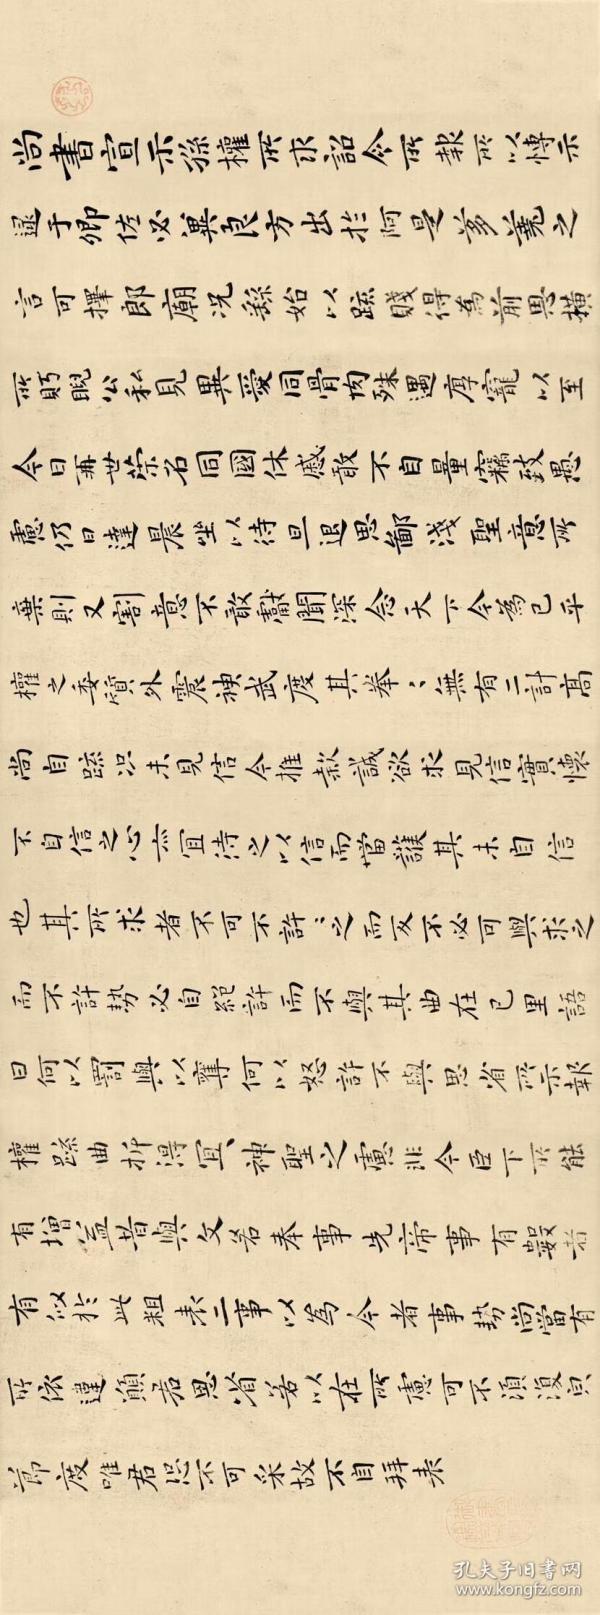 尚書宣示孫權所求詔令所報所以博示
逮于卿佐必冀良方出於阿是芻蕘之
言可擇郎廟況繇始以疏賤得為前恩橫
所眄睨公私見異愛同骨肉殊遇厚寵以至
今日再世榮名同國休慼敢不自量竊致愚
慮仍日達晨坐以待旦退思鄙淺聖意所
棄則又割意不敢獻聞深念天下今為已平
權之委質外震神武度其拳〻無有二計高
尚自疏況未見信今推款誠欲求見信實懷
不自信之心亦宜待之以信而當護其未自信
也其所求者不可不許〻之而反不必可與求之
而不許勢必自絕許而不與其曲在己里語
曰何以罰與以奪何以怒許不與思省所示報
權疏曲折得宜〻神聖之慮非今臣下所能
有增益昔與文若奉事先帝事有數者
有似於此粗表二事以為今者事勢尚當有
所依違願君思省若以在所慮可不須復
節度唯君恐不可采故不自拜表
孔夫子旧书网
www.kongfz.com